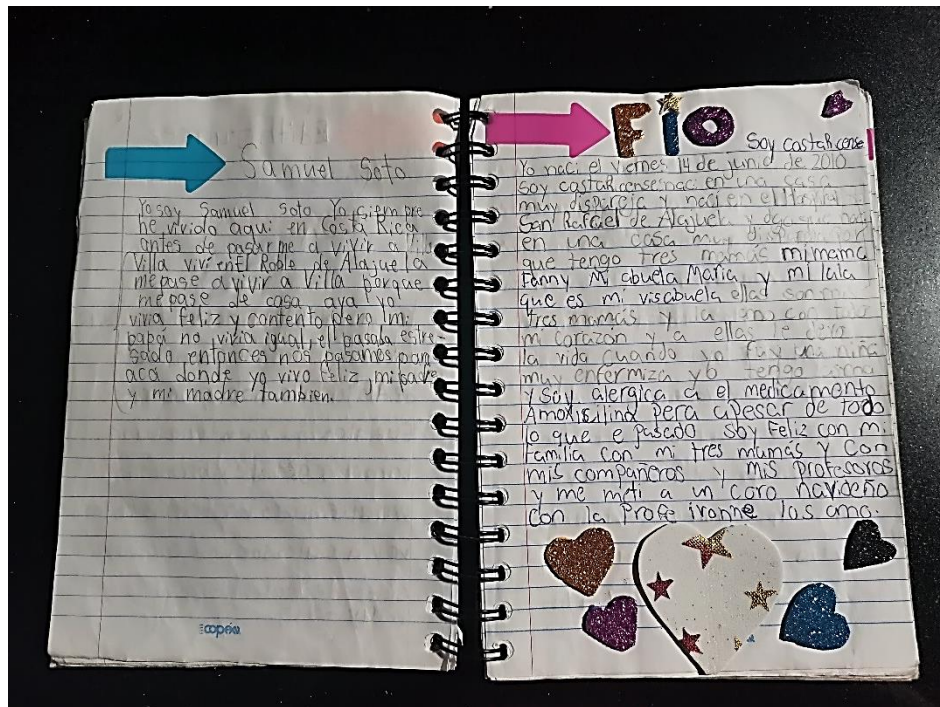 Samuel Soto
Yo soy Samuel Soto Yo siempre
he vivido aqui en Costa Rica
antes de pasarme a vivir a
Villa vivi en El Roble de Alajuella
me pase a vivir a Villa porque
me pase de casa, aya yo
vivia feliz y contento pero mi
papá no vivia igual, el pasaba estre-
sado entonces nos pasamos para
aca donde yo vivo feliz, mi padre
y mi madre tambien.
copán
FIO
Soy costaRicense
Yo naci el viernes 14 de junio de 2010
Soy costaRicense naci en una casa
muy dispareja y naci en el Hospital
San Rafael de Alajuela y
en una casa muy
que tengo tres mamás mi mama
Fanny Mi abuela Maria y mi lala
que es mi visabuela ellas son mis
tres mamás y la amo con todo
mi corazón y a ellas le devo
la vida cuando yo fuy una niña
muy enfermiza yo tengo asma
y Soy alergica a el medicamento
Amoxisilina pera apesar de todo
lo que e pasado soy Feliz con mi
familia con mi tres mamás y con
mis compañeros y mis profesores
y me meti a un coro navideño
con la Profe ivonne los amo.